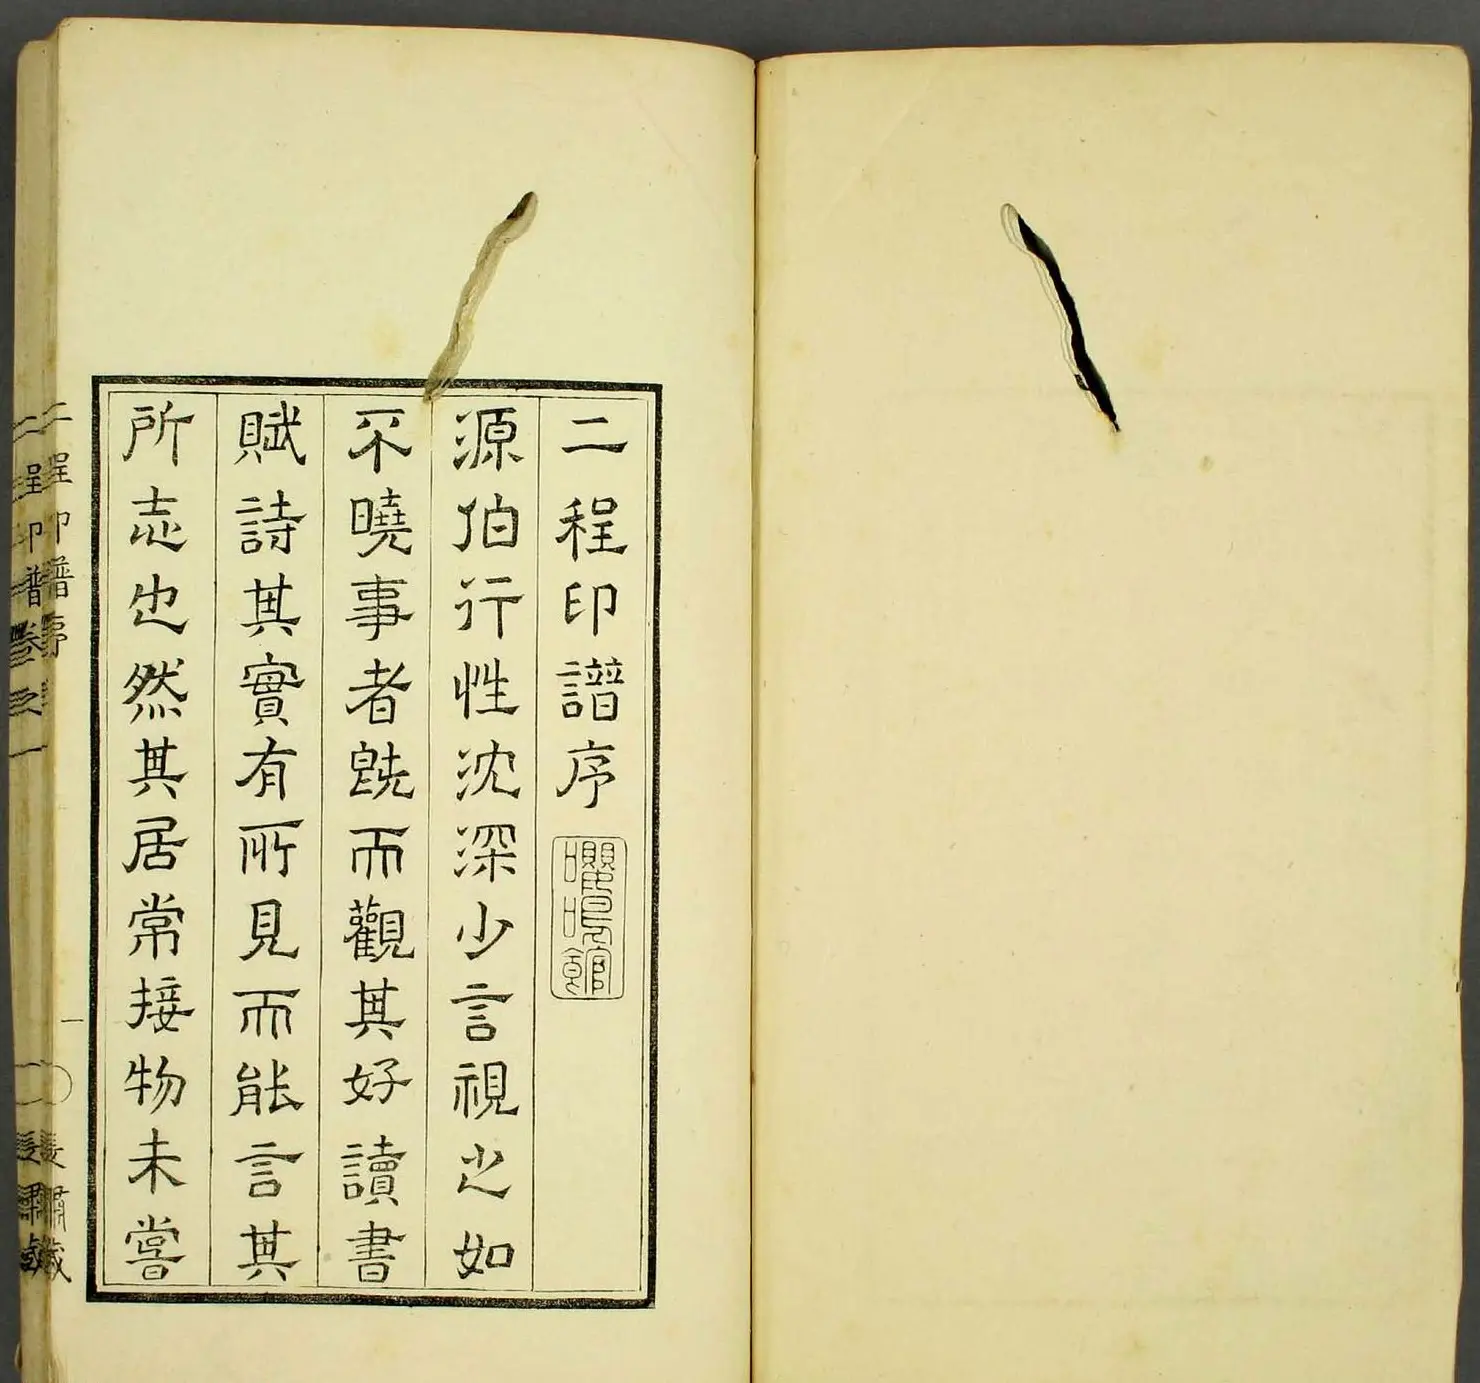 二程印譜序
嚶鳴館
源伯行性沈深少言視之如
不曉事者既而觀其好讀書
賦詩其實有所見而能言其
所志也然其居常接物未嘗
二程印譜序
一
二程印譜卷之一